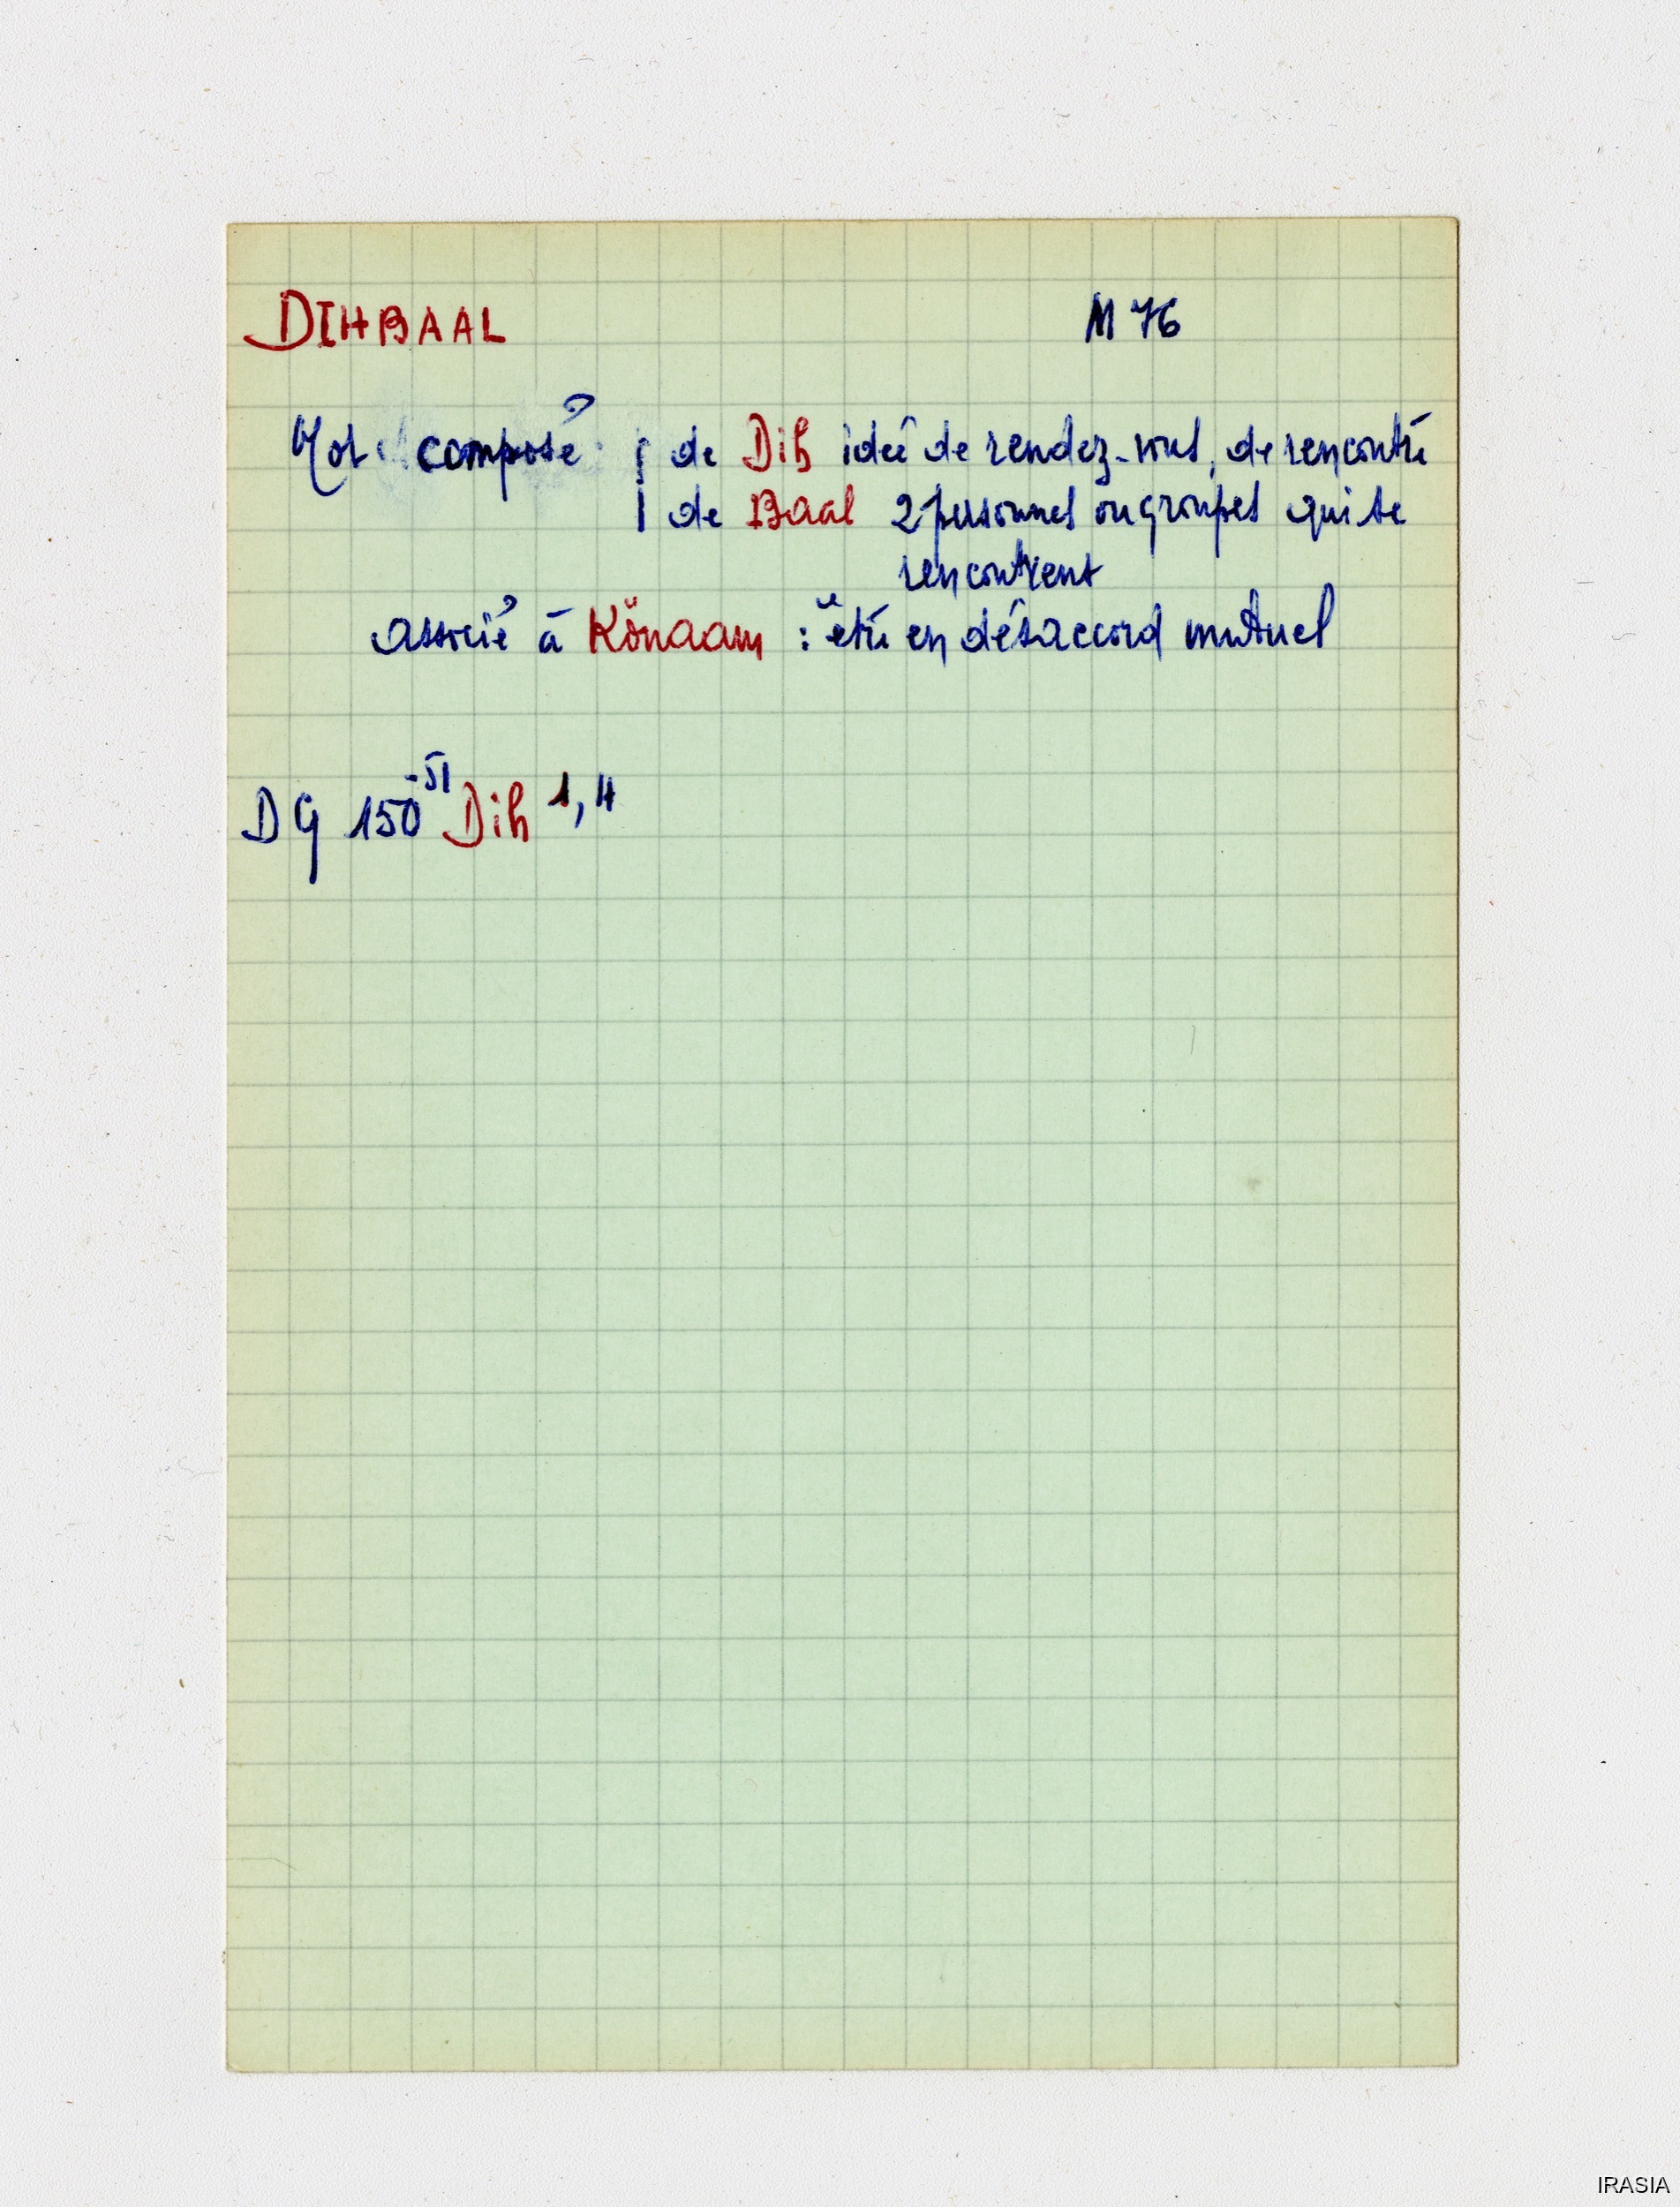 DIHBAAL M 76
Mot composé de Dih idée de rendez-vous, de rencontre
de Baal 2 personnes ou groupes qui se
rencontrent
associé à Könaam : être en désaccord mutuel
DG 150-51 Dih 1, 4
IRASIA